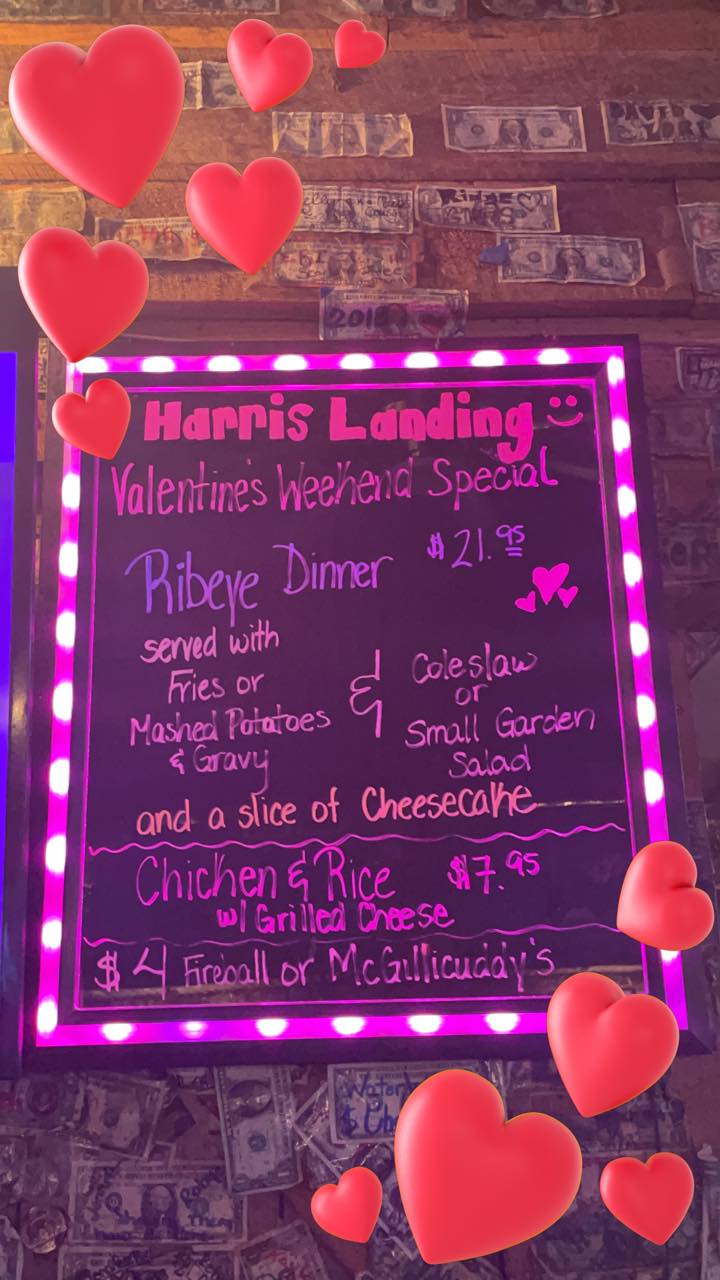 2018
Harris Landing
Valentine's Weekend Special
Ribeye Dinner $21.95
served with
Fries or
Mashed Potatoes
& Gravy
&
Coleslaw
or
Small Garden
Salad
and a slice of Cheesecake
Chicken & Rice $7.95
w/ Grilled Cheese
$4 Fireball or McGillicuddy's